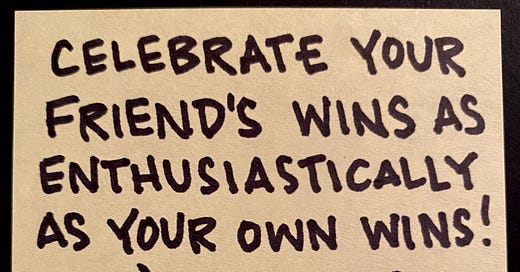 CELEBRATE YOUR
FRIEND'S WINS AS
ENTHUSIASTICALLY
AS YOUR OWN WINS!